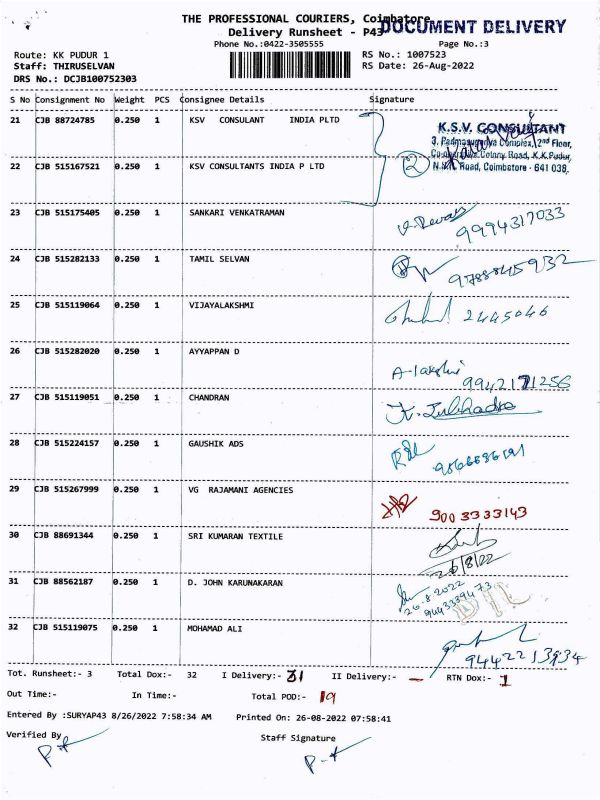 THE PROFESSIONAL COURIERS, Coimbatore
DOCUMENT DELIVERY
Delivery Runsheet - P43
Phone No.:0422-3505555 Page No.:3
Route: KK PUDUR 1 RS No.: 1007523
Staff: THIRUSELVAN RS Date: 26-Aug-2022
DRS No.: DCJB100752303
S No Consignment No Weight PCS Consignee Details Signature
21 CJB 88724785 0.250 1 KSV CONSULANT INDIA PLTD
K.S.V. CONSULTANT
3, Complex, 2nd Floor,
Colony Road, K.K.Pudur,
Road, Coimbatore - 641 038.
22 CJB 515167521 0.250 1 KSV CONSULTANTS INDIA P LTD 2
23 CJB 515175405 0.250 1 SANKARI VENKATRAMAN 9994317033
24 CJB 515282133 0.250 1 TAMIL SELVAN 9788845932
25 CJB 515119064 0.250 1 VIJAYALAKSHMI 2445046
26 CJB 515282020 0.250 1 AYYAPPAN D A-lakshi 9942171256
27 CJB 515119051 0.250 1 CHANDRAN K. Subhadra
28 CJB 515224157 0.250 1 GAUSHIK ADS
29 CJB 515267999 0.250 1 VG RAJAMANI AGENCIES 9003333143
30 CJB 88691344 0.250 1 SRI KUMARAN TEXTILE 26/8/22
31 CJB 88562187 0.250 1 D. JOHN KARUNAKARAN 26.8.2022 9443339473
32 CJB 515119075 0.250 1 MOHAMAD ALI 9442213934
Tot. Runsheet:- 3 Total Dox:- 32 I Delivery:- 31 II Delivery:- — RTN Dox:- 1
Out Time:- In Time:- Total POD:- 19
Entered By :SURYAP43 8/26/2022 7:58:34 AM Printed On: 26-08-2022 07:58:41
Verified By Staff Signature